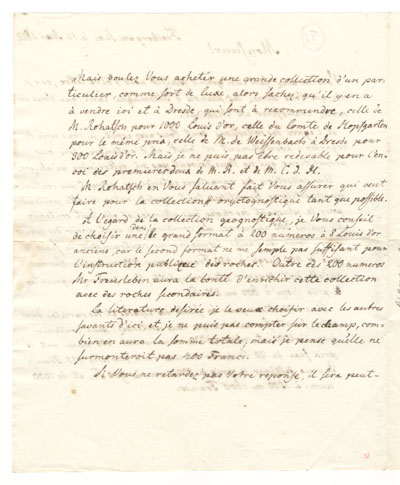 Mais voulez Vous acheter une grande collection d'un par-
ticulier, comme sort de luxe, alors sachez qu'il y en a
à vendre ici et à Dresde, qui sont à recommendre, celle de
M. Rohatsch pour 1000 Louis d'or, celle du Comte de Hopfgarten
pour le même prix, celle de M. de Weissenbach à Dresde pour
300 Louis d'or. Mais je ne puis pas être redevable pour l'en-
voi des premieres deux à M. R. et de M. C. d. H.
M. Rohatsch en Vous saluant fait Vous assurer qui veut
faire pour la collection oryctognostique tant que possible.
A l'egard de la collection geognostique, je Vous conseil
de choisir une de grand format à 200 numeros à 8 Louis d'or
anciens, car le second format ne me semple pas suffisant pour
l'instruction publique des roches. Outre des 200 numeros
Mr Freiesleben aura la bonté d'enrichir cette collection
avec des roches secondaires.
La literature desirée je le veux choisir avec les autres
savants d'ici, et je ne puis pas compter sur le champ, com-
bien en aura la somme totale, mais je pense qu'elle ne
surmonteroit pas 400 Francs.
Si Vous ne retardez pas Votre reponse, il sera peut-